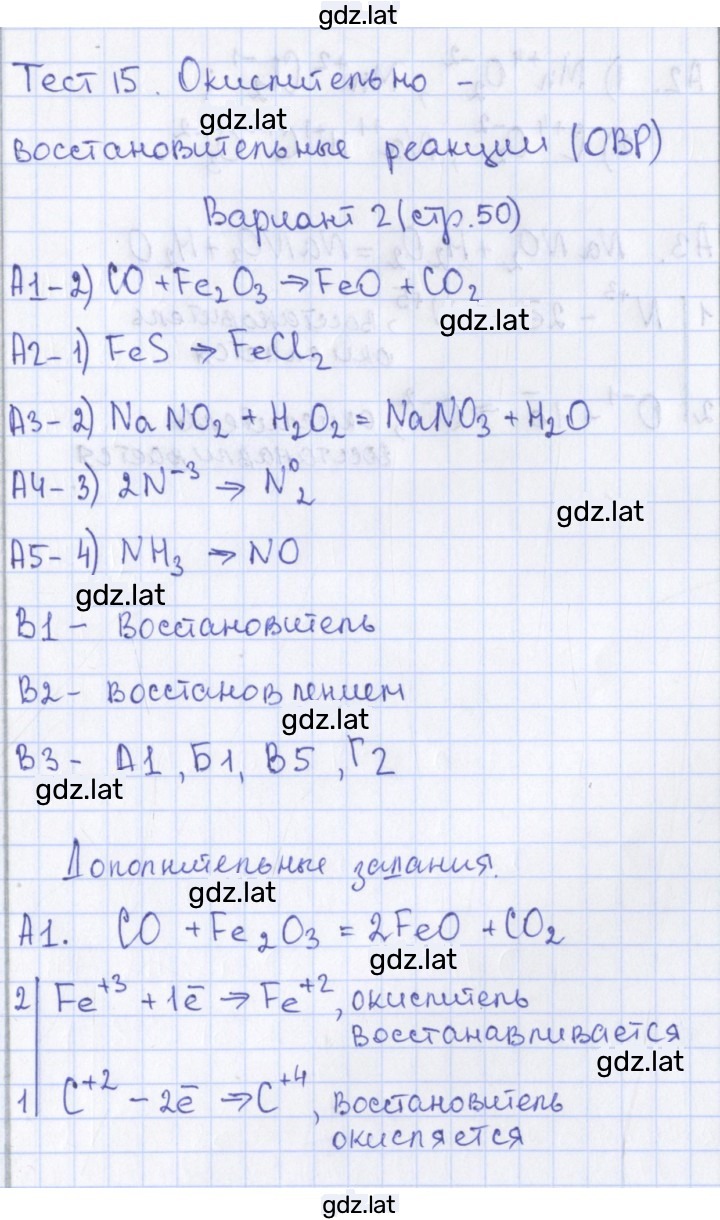 gdz.lat
Тест 15. Окислительно –
gdz.lat
восстановительные реакции (ОВР)
Вариант 2 (стр.50)
А1-2) CO + Fe₂O₃ → FeO + CO₂
gdz.lat
А2-1) FeS → FeCl₂
А3-2) NaNO₂ + H₂O₂ = NaNO₃ + H₂O
А4-3) 2N⁻³ → N⁰₂
gdz.lat
А5-4) NH₃ → NO
gdz.lat
В1- Восстановитель
В2- восстановлением
gdz.lat
В3- А1, Б1, В5, Г2
gdz.lat
Дополнительные задания.
gdz.lat
А1. CO + Fe₂O₃ = 2FeO + CO₂
gdz.lat
2| Fe⁺³ + 1ē → Fe⁺², окислитель
восстанавливается
gdz.lat
1| C⁺² – 2ē → C⁺⁴, восстановитель
окисляется
gdz.lat